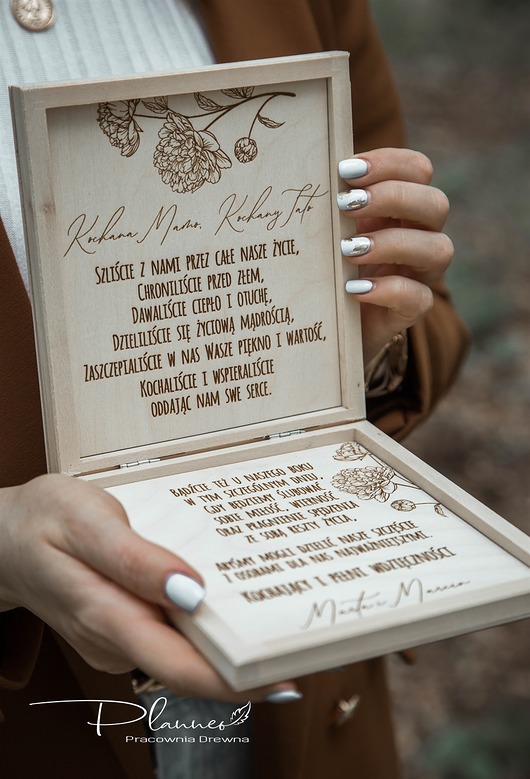 Kochana Mamo, Kochany Tato
Szliście z nami przez całe nasze życie,
Chroniliście przed złem,
Dawaliście ciepło i otuchę,
Dzieliliście się życiową mądrością,
Zaszczepialiście w nas Wasze piękno i wartość,
Kochaliście i wspieraliście
oddając nam swe serce.
Bądźcie też u naszego boku
w tym szczególnym dniu,
gdy będziemy ślubować
sobie miłość, wierność
oraz pragnienie spędzenia
ze sobą reszty życia,
abyśmy mogli dzielić nasze szczęście
z osobami dla nas najważniejszymi.
Kochający i pełni wdzięczności
Marta i Marcin
Planneo
Pracownia Drewna